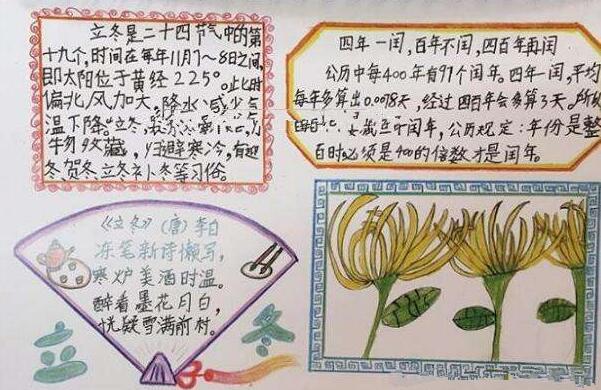 立冬是二十四节气中的第
十九个,时间在每年11月7~8日之间,
即太阳位于黄经225°。此时
偏北风加大,降水减少气
温下降。立冬,
物收藏,归避寒冷,有迎
冬、贺冬、立冬补冬等习俗。
四年一闰,百年不闰,四百年再闰
公历中每400年有97个闰年。四年一闰,平均
每年多算出0.0078天,经过四百年会多算3天。所以
每四 年闰年,公历规定:年份是整
百时必须是400的倍数才是闰年。
《立冬》(唐)李白
冻笔新诗懒写,
寒炉美酒时温。
醉看墨花月白,
恍疑雪满前村。
立
冬